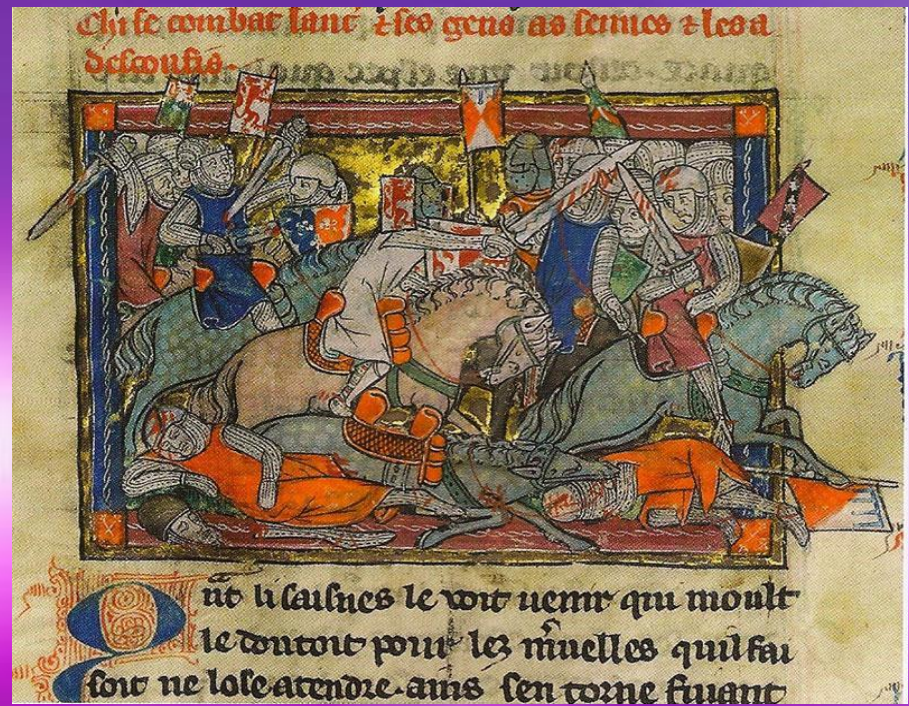 Chi se combat lanc ⁊ ses gens as sesnes ⁊ les a
desconfis.
Qn̄t li saisnes le voit uenir qui moult
le doutoit pour les m̃uelles quil fai
soit ne lose atendre. ains sen torne fuiant